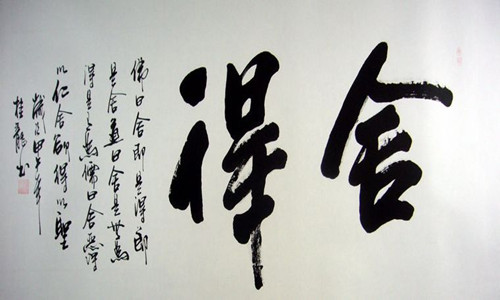 舍得
佛曰舍即是得即
是舍道曰舍是無為
得是有為儒曰舍惡得
以仁舍欲得以聖
歲甲午年
桂龍